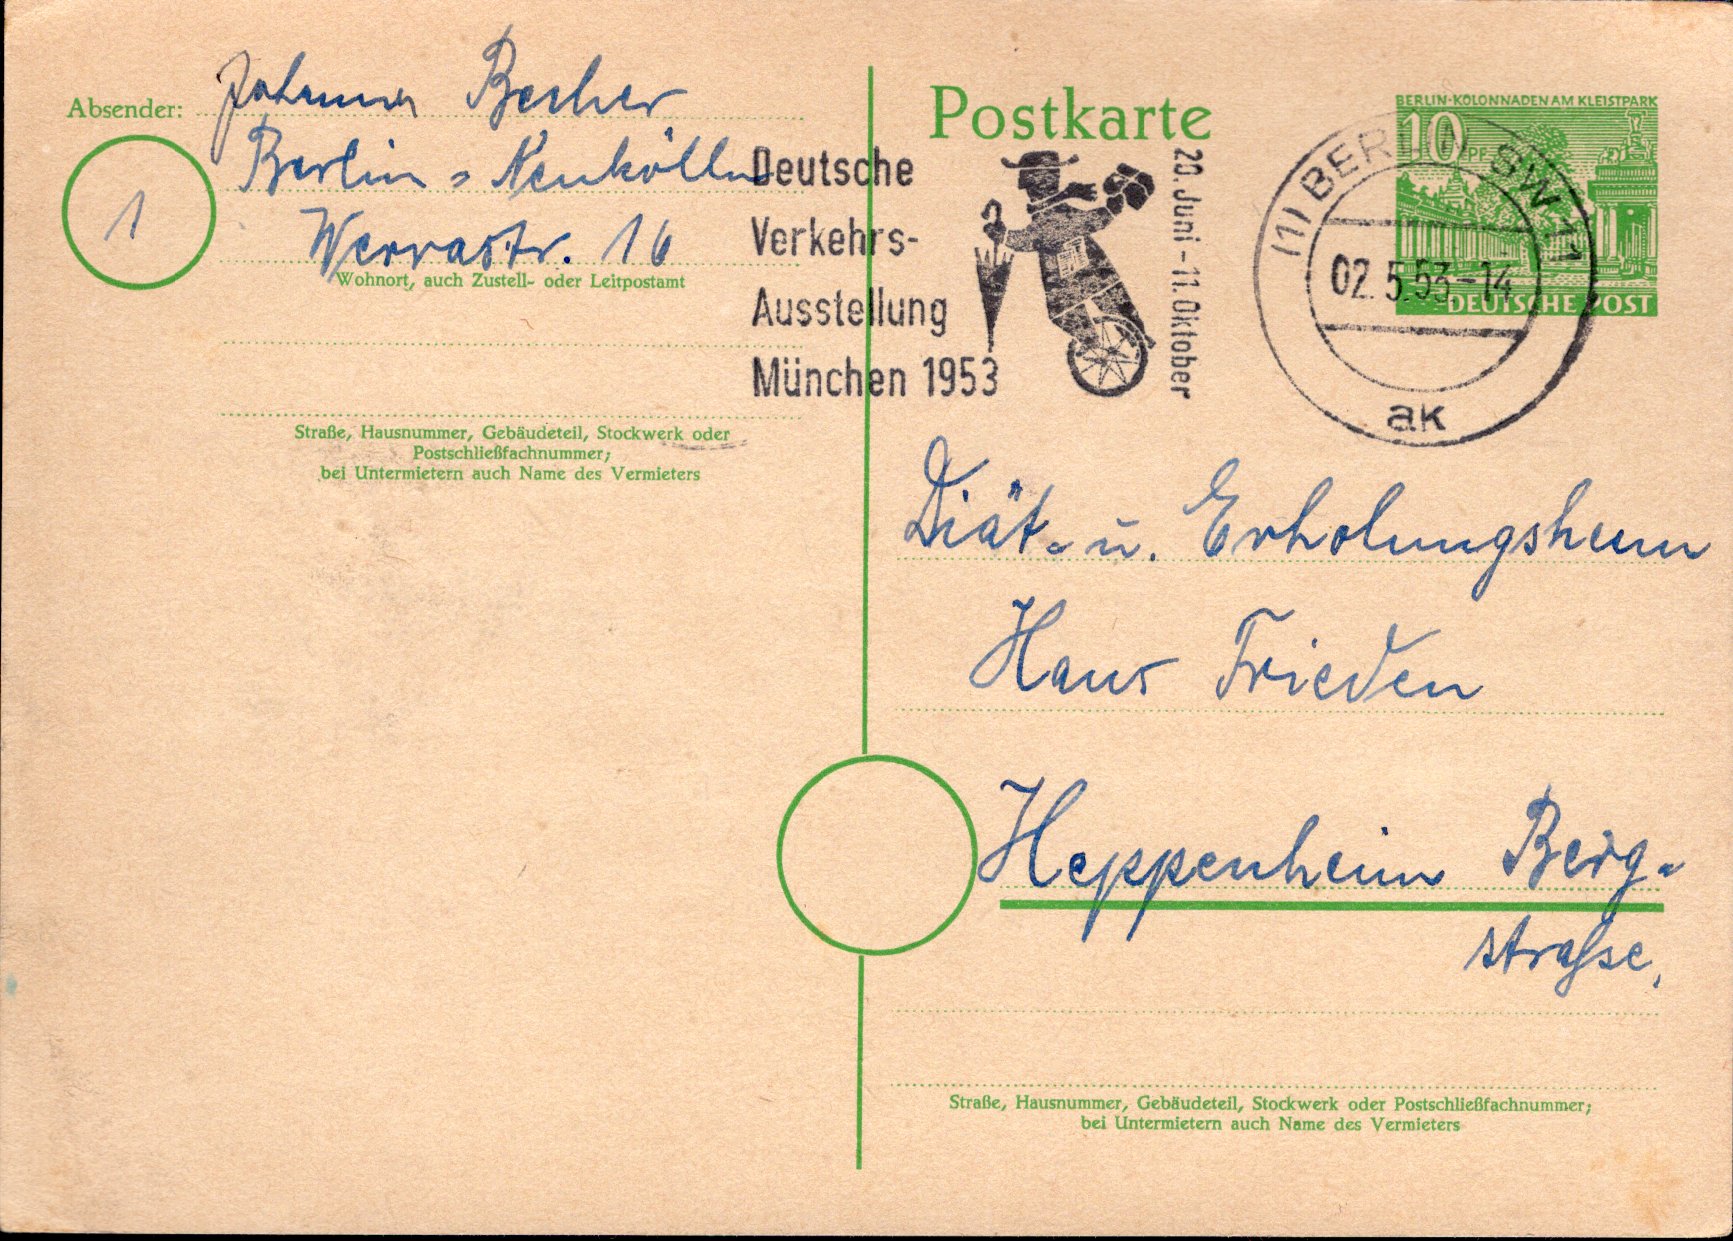 Absender:
Becher
1
Berlin-Neukölln
Werrastr. 16
Wohnort, auch Zustell- oder Leitpostamt
Straße, Hausnummer, Gebäudeteil, Stockwerk oder
Postschließfachnummer;
bei Untermietern auch Name des Vermieters
Postkarte
Deutsche
Verkehrs-
Ausstellung
München 1953
20. Juni - 11. Oktober
BERLIN-KOLONNADEN AM KLEISTPARK
10 PF
DEUTSCHE POST
(1) BERLIN SW 11
02.5.53-14
ak
Diät- u. Erholungsheim
Haus Frieden
Heppenheim Berg-
strasse,
Straße, Hausnummer, Gebäudeteil, Stockwerk oder Postschließfachnummer;
bei Untermietern auch Name des Vermieters